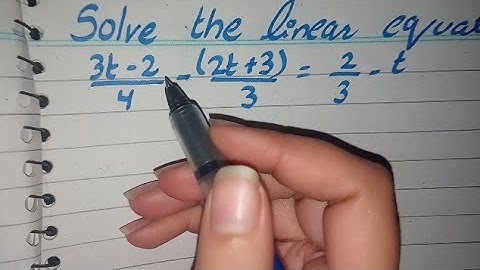 Solve the linear equat
(3t - 2)/4 - (2t + 3)/3 = 2/3 - t